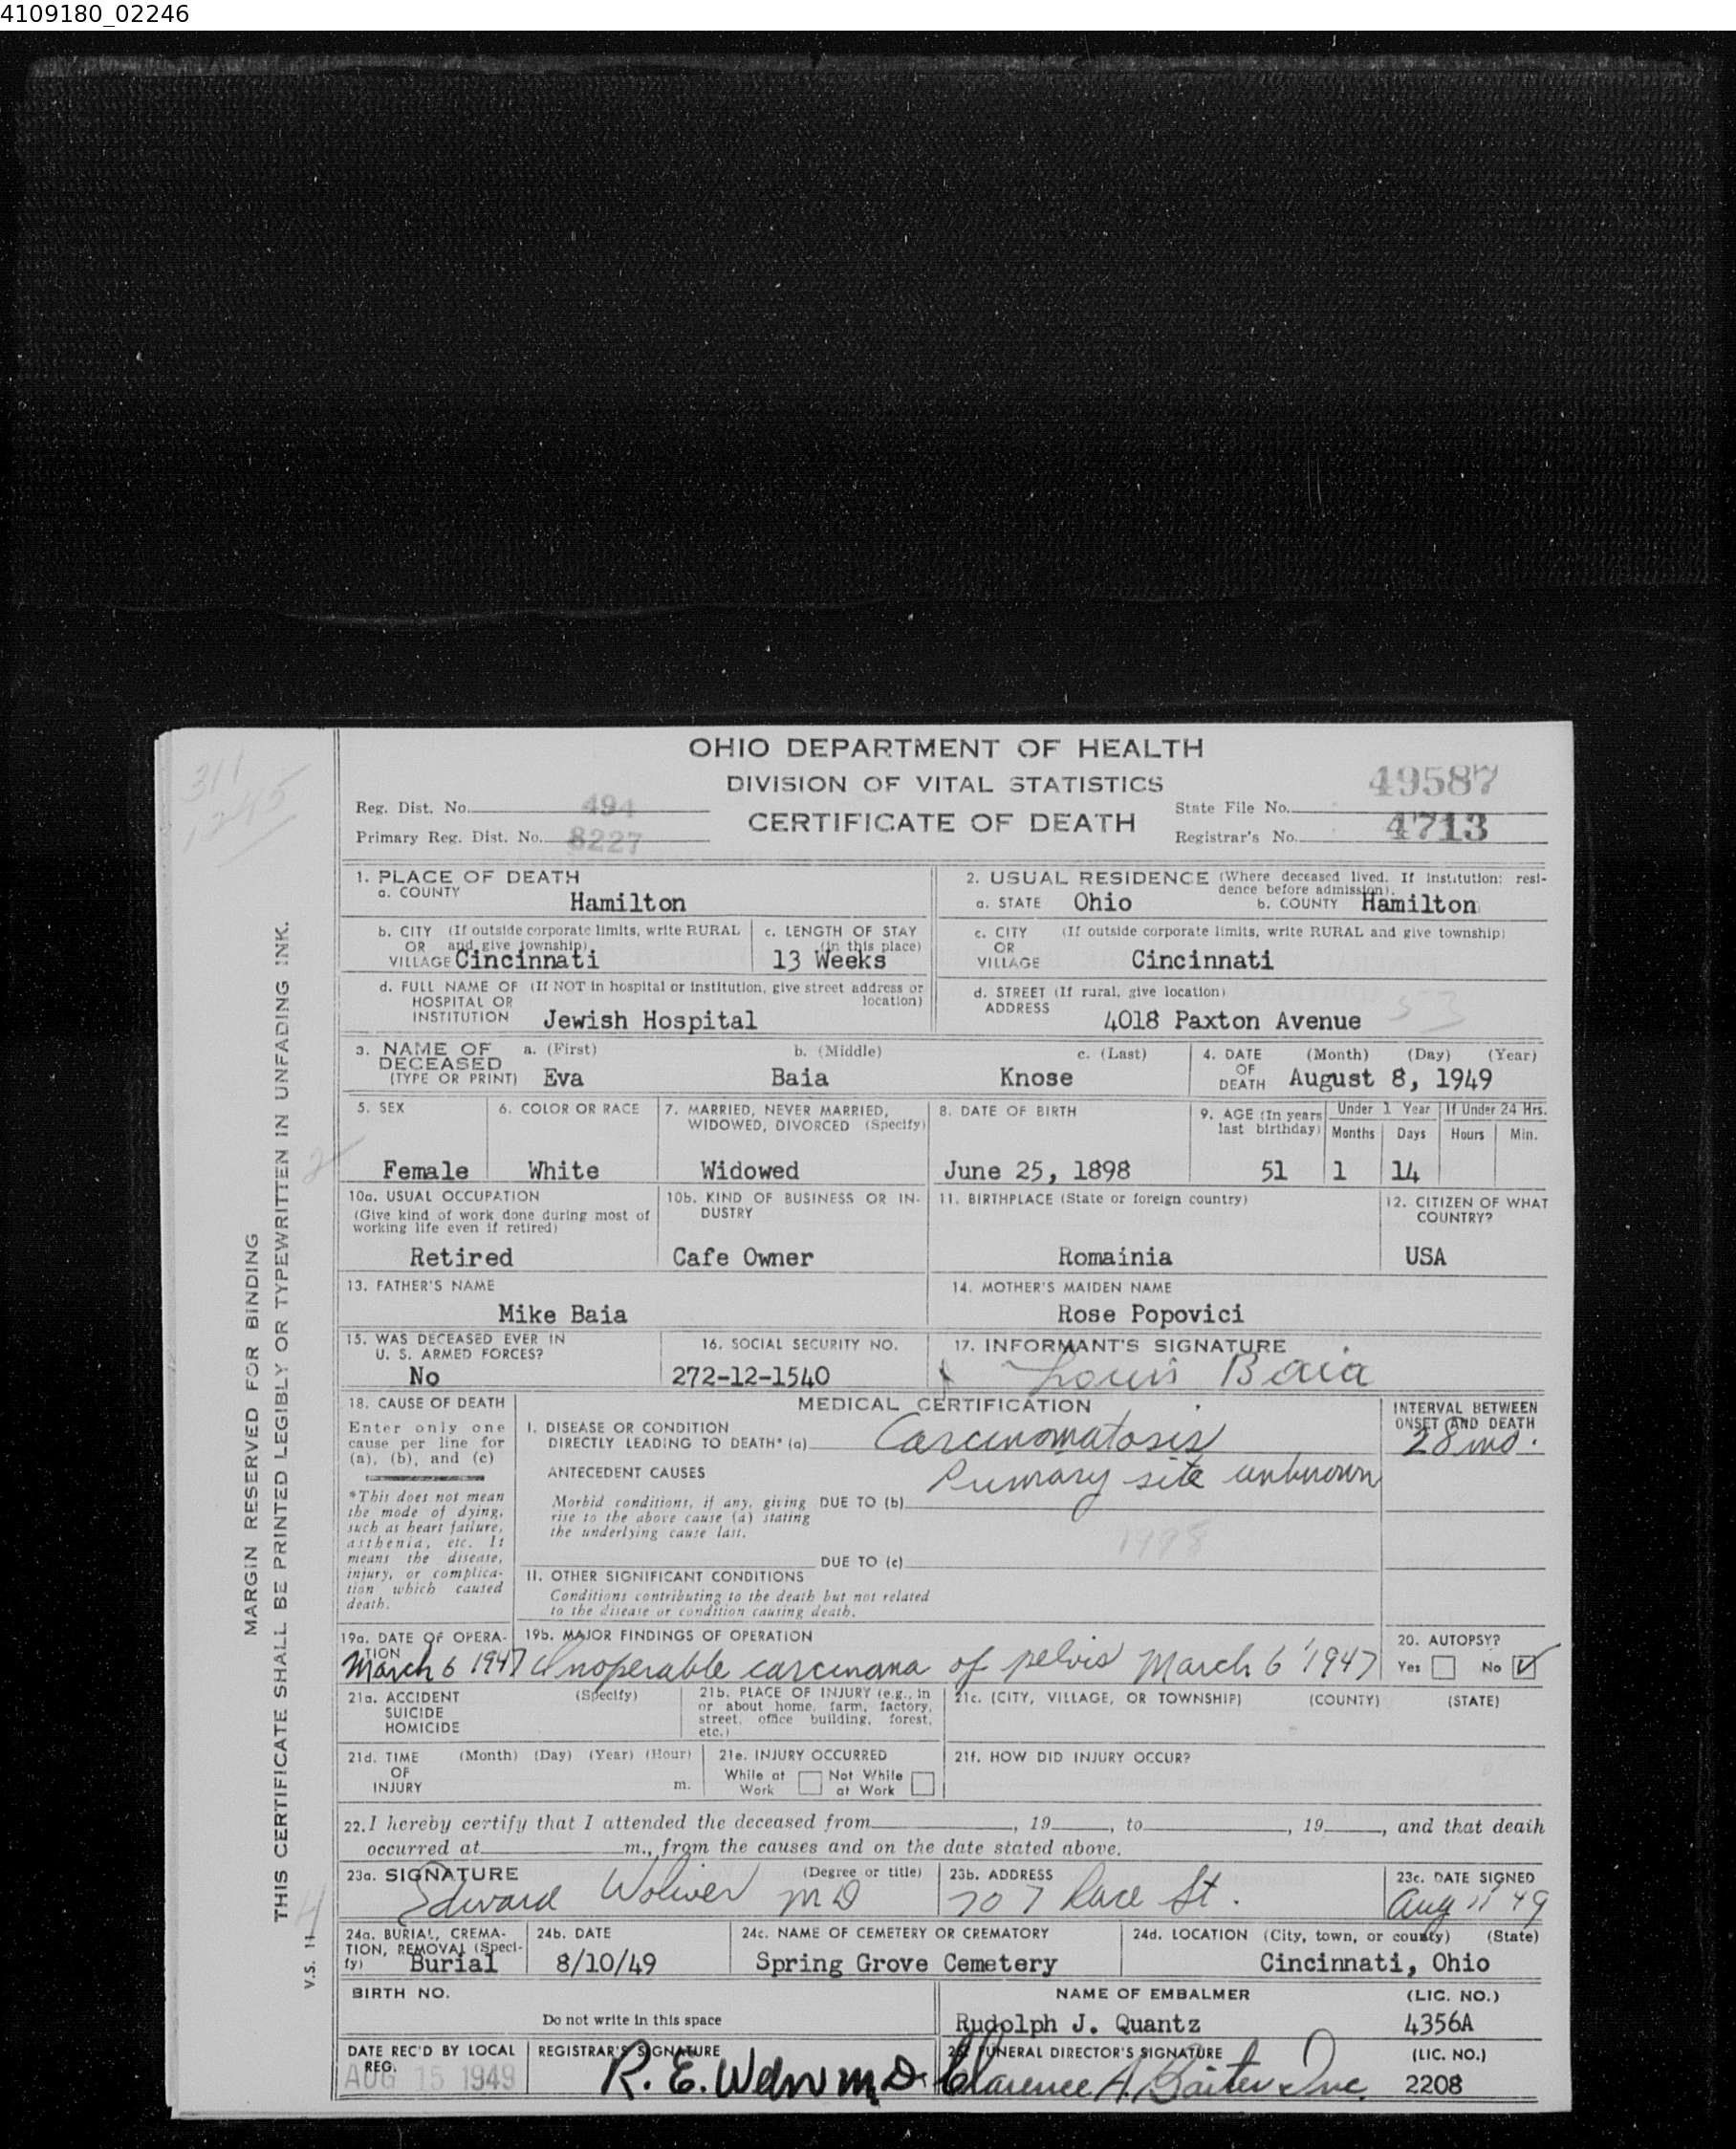 4109180_02246
OHIO DEPARTMENT OF HEALTH
DIVISION OF VITAL STATISTICS
CERTIFICATE OF DEATH
Reg. Dist. No. 494
Primary Reg. Dist. No. 8227
State File No. 49587
Registrar's No. 4713
311
1245
MARGIN RESERVED FOR BINDING
THIS CERTIFICATE SHALL BE PRINTED LEGIBLY OR TYPEWRITTEN IN UNFADING INK.
V.S. 11
1. PLACE OF DEATH
a. COUNTY Hamilton
2. USUAL RESIDENCE (Where deceased lived. If institution: residence before admission).
a. STATE Ohio b. COUNTY Hamilton
b. CITY (If outside corporate limits, write RURAL
OR and give township)
VILLAGE Cincinnati
c. LENGTH OF STAY
(in this place)
13 Weeks
c. CITY (If outside corporate limits, write RURAL and give township)
OR
VILLAGE Cincinnati
d. FULL NAME OF (If NOT in hospital or institution, give street address or
HOSPITAL OR location)
INSTITUTION Jewish Hospital
d. STREET (If rural, give location)
ADDRESS 4018 Paxton Avenue
3. NAME OF a. (First) b. (Middle) c. (Last)
DECEASED
(TYPE OR PRINT) Eva Baia Knose
4. DATE (Month) (Day) (Year)
OF
DEATH August 8, 1949
5. SEX
Female
6. COLOR OR RACE
White
7. MARRIED, NEVER MARRIED,
WIDOWED, DIVORCED (Specify)
Widowed
8. DATE OF BIRTH
June 25, 1898
9. AGE (In years
last birthday)
51
Under 1 Year
Months Days
1 14
If Under 24 Hrs.
Hours Min.
10a. USUAL OCCUPATION
(Give kind of work done during most of
working life even if retired)
Retired
10b. KIND OF BUSINESS OR IN-
DUSTRY
Cafe Owner
11. BIRTHPLACE (State or foreign country)
Romainia
12. CITIZEN OF WHAT
COUNTRY?
USA
13. FATHER'S NAME
Mike Baia
14. MOTHER'S MAIDEN NAME
Rose Popovici
15. WAS DECEASED EVER IN
U. S. ARMED FORCES?
No
16. SOCIAL SECURITY NO.
272-12-1540
17. INFORMANT'S SIGNATURE
Louis Baia
18. CAUSE OF DEATH
Enter only one
cause per line for
(a), (b), and (c)
*This does not mean
the mode of dying,
such as heart failure,
asthenia, etc. It
means the disease,
injury, or complica-
tion which caused
death.
MEDICAL CERTIFICATION
I. DISEASE OR CONDITION
DIRECTLY LEADING TO DEATH* (a) Carcinomatosis
ANTECEDENT CAUSES Primary site unknown
Morbid conditions, if any, giving DUE TO (b)
rise to the above cause (a) stating
the underlying cause last.
1998
DUE TO (c)
II. OTHER SIGNIFICANT CONDITIONS
Conditions contributing to the death but not related
to the disease or condition causing death.
INTERVAL BETWEEN
ONSET AND DEATH
28 mo.
19a. DATE OF OPERA-
TION
March 6 1947
19b. MAJOR FINDINGS OF OPERATION
Inoperable carcinoma of pelvis March 6 1947
20. AUTOPSY?
Yes No
21a. ACCIDENT (Specify)
SUICIDE
HOMICIDE
21b. PLACE OF INJURY (e.g., in
or about home, farm, factory,
street, office building, forest,
etc.)
21c. (CITY, VILLAGE, OR TOWNSHIP) (COUNTY) (STATE)
21d. TIME (Month) (Day) (Year) (Hour)
OF
INJURY m.
21e. INJURY OCCURRED
While at Not While
Work at Work
21f. HOW DID INJURY OCCUR?
22. I hereby certify that I attended the deceased from , 19 , to , 19 , and that death
occurred at m., from the causes and on the date stated above.
23a. SIGNATURE (Degree or title)
Edward Woliver MD
23b. ADDRESS
707 Race St.
23c. DATE SIGNED
Aug 11 '49
24a. BURIAL, CREMA-
TION, REMOVAL (Speci-
fy) Burial
24b. DATE
8/10/49
24c. NAME OF CEMETERY OR CREMATORY
Spring Grove Cemetery
24d. LOCATION (City, town, or county) (State)
Cincinnati, Ohio
BIRTH NO.
Do not write in this space
NAME OF EMBALMER (LIC. NO.)
Rudolph J. Quantz 4356A
DATE REC'D BY LOCAL
REG.
AUG 15 1949
REGISTRAR'S SIGNATURE
R. E. M.D.
FUNERAL DIRECTOR'S SIGNATURE (LIC. NO.)
Clarence A. Inc. 2208